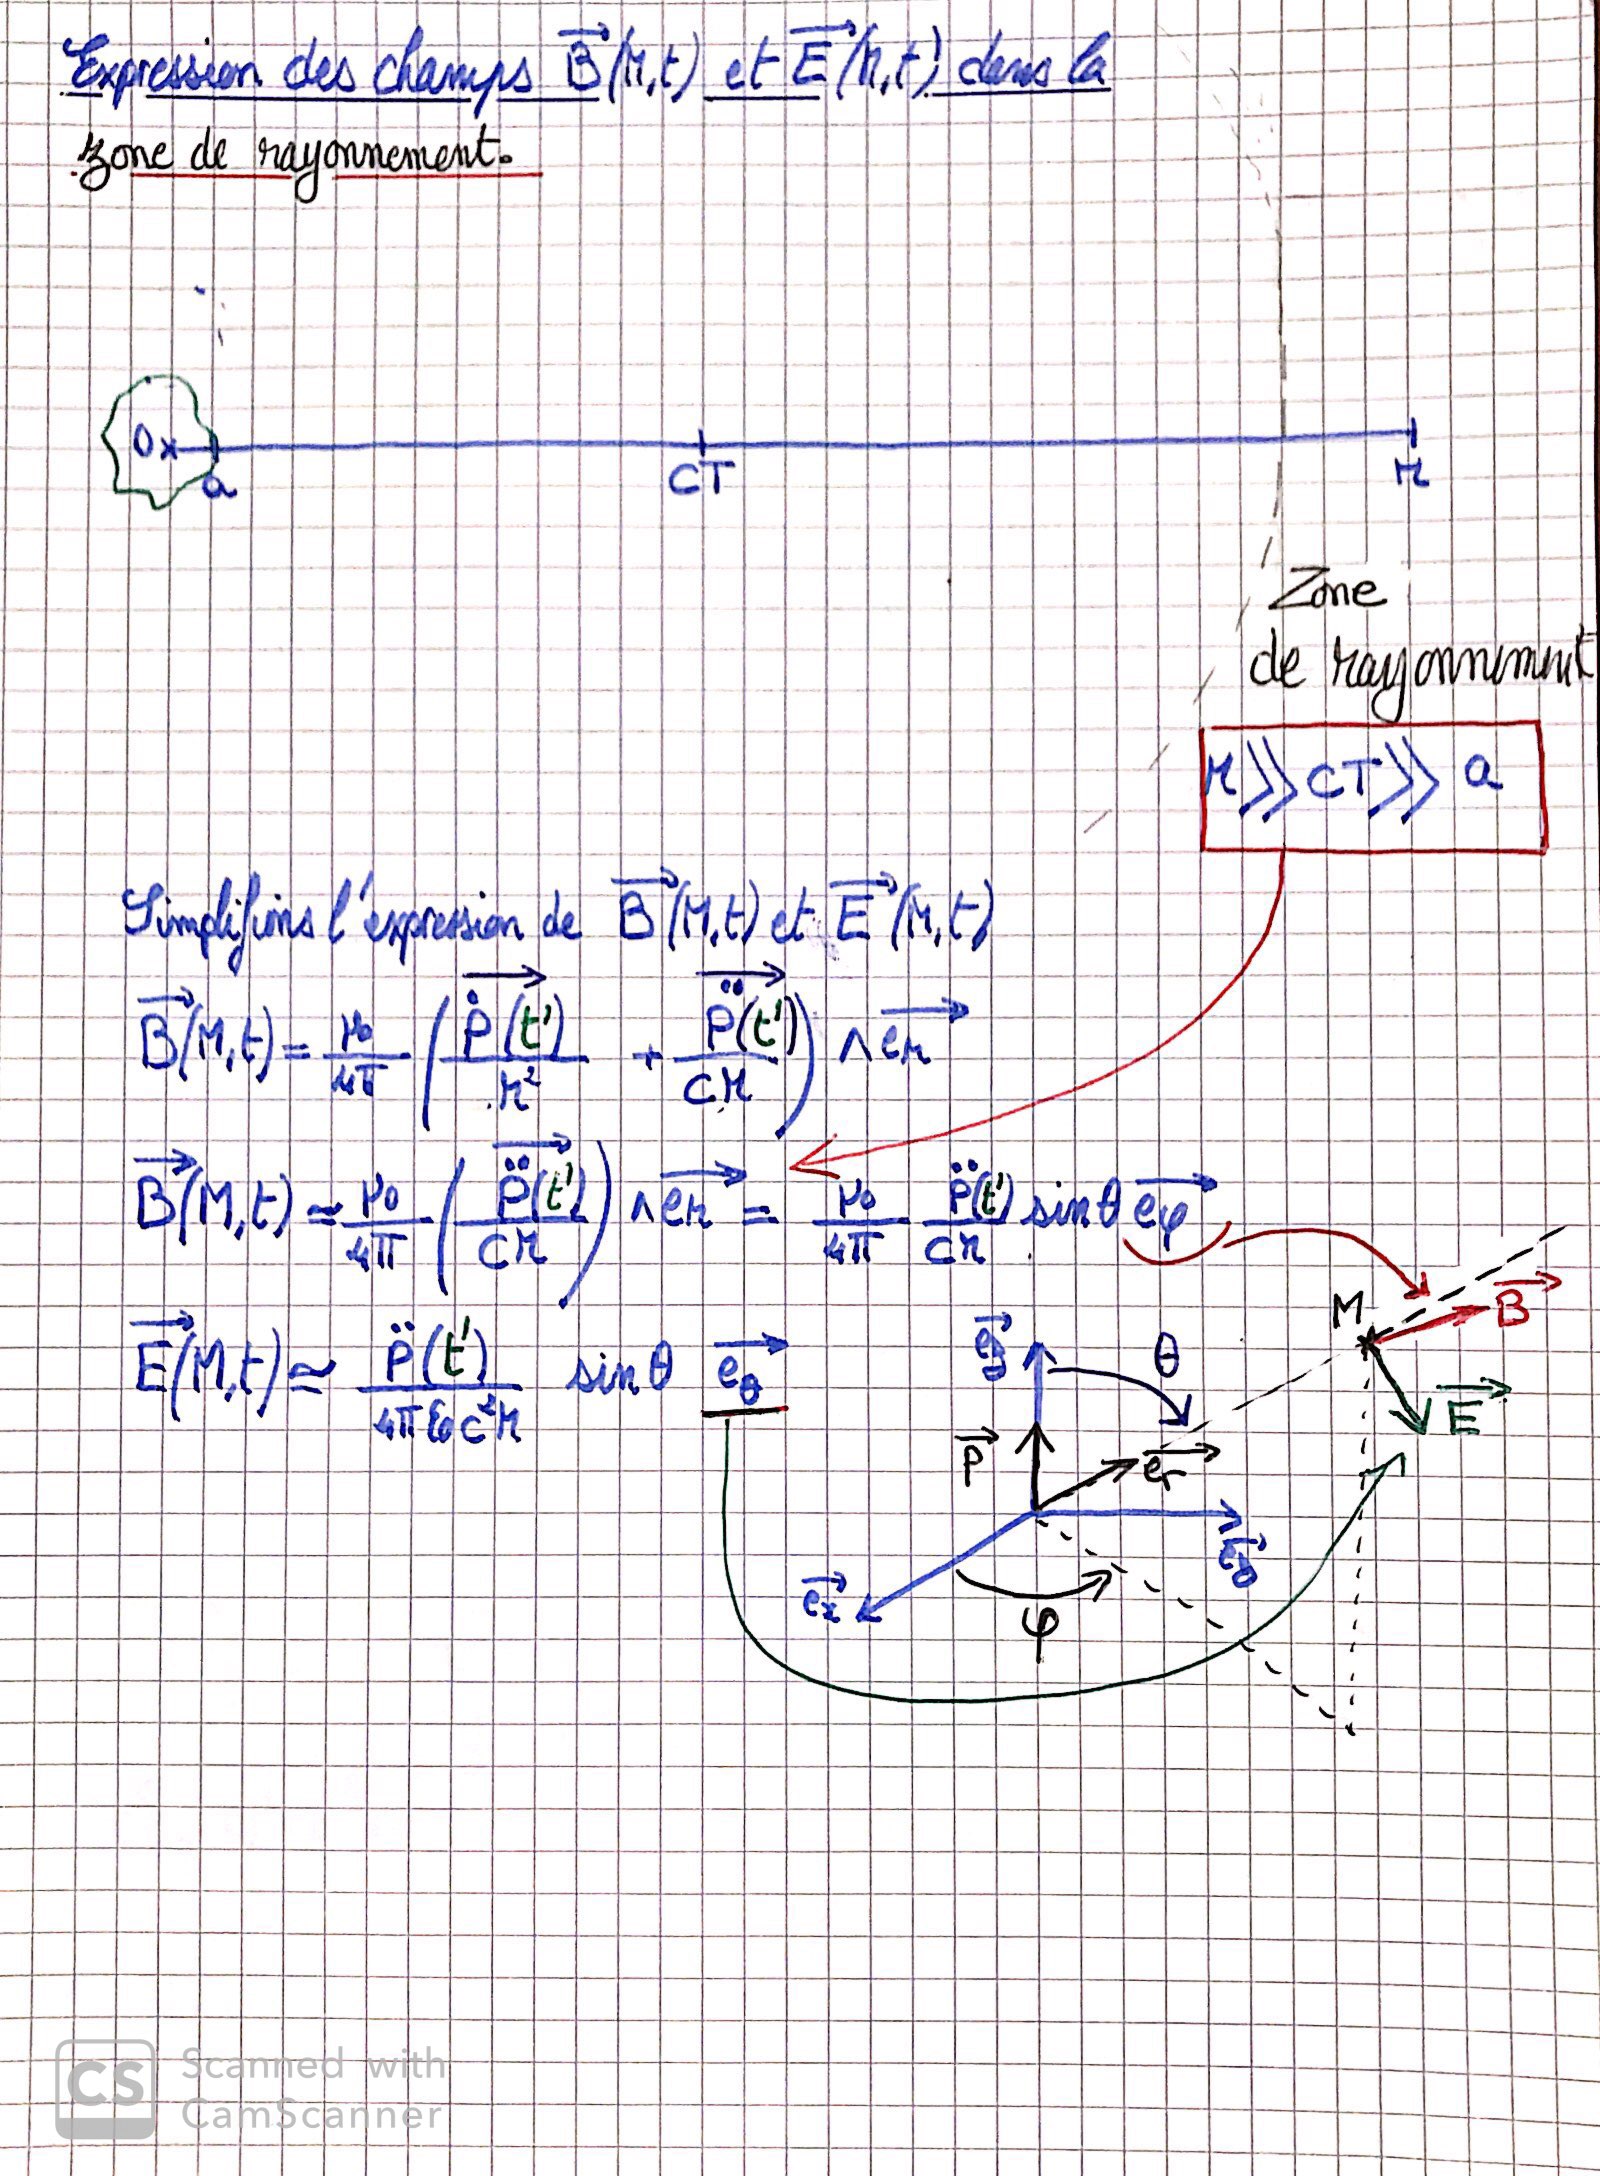 Expression des champs B⃗(M,t) et E⃗(M,t) dans la
zone de rayonnement.
O a CT r
Zone
de rayonnement
r >> CT >> a
Simplifions l'expression de B⃗(M,t) et E⃗(M,t)
B⃗(M,t) = μ₀/4π ( ṗ⃗(t')/r² + p̈⃗(t')/cr ) ∧ e⃗r
B⃗(M,t) ≃ μ₀/4π ( p̈⃗(t')/cr ) ∧ e⃗r = μ₀/4π p̈(t')/cr sinθ e⃗φ
M B⃗
E⃗(M,t) ≃ p̈(t')/4πε₀c²r sinθ e⃗θ
e⃗z θ
E⃗
p⃗ e⃗r
e⃗x
φ
CS Scanned with
CamScanner